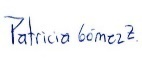 Patricia Gómez Z.